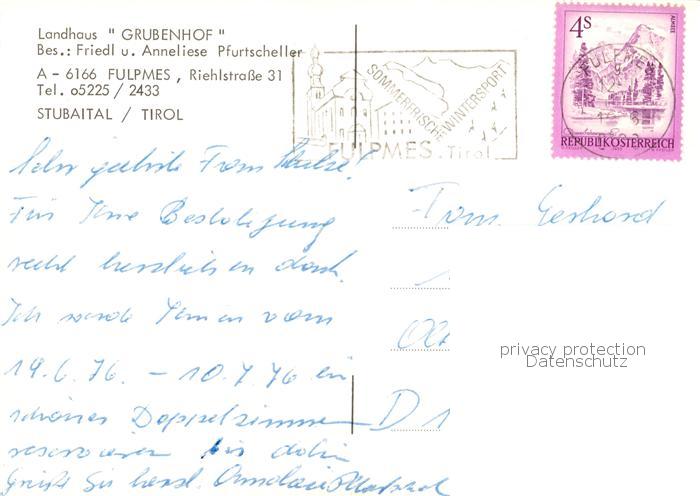 Landhaus " GRUBENHOF "
Bes.: Friedl u. Anneliese Pfurtscheller
A - 6166 FULPMES, Riehlstraße 31
Tel. o5225 / 2433
STUBAITAL / TIROL
SOMMERFRISCHE-WINTERSPORT
FULPMES. Tirol
4S
ALMSEE
REPUBLIK ÖSTERREICH
FULPMES
Sehr geehrte Frau
Für Ihre Bestätigung
recht herzlichen dank.
Ich werde Ihnen vom
19.6.76. - 10.7.76 ein
schönes Doppelzimmer
reservieren bis dahin
Grüßt Sie herzl.
Gerhard
D 1
privacy protection
Datenschutz